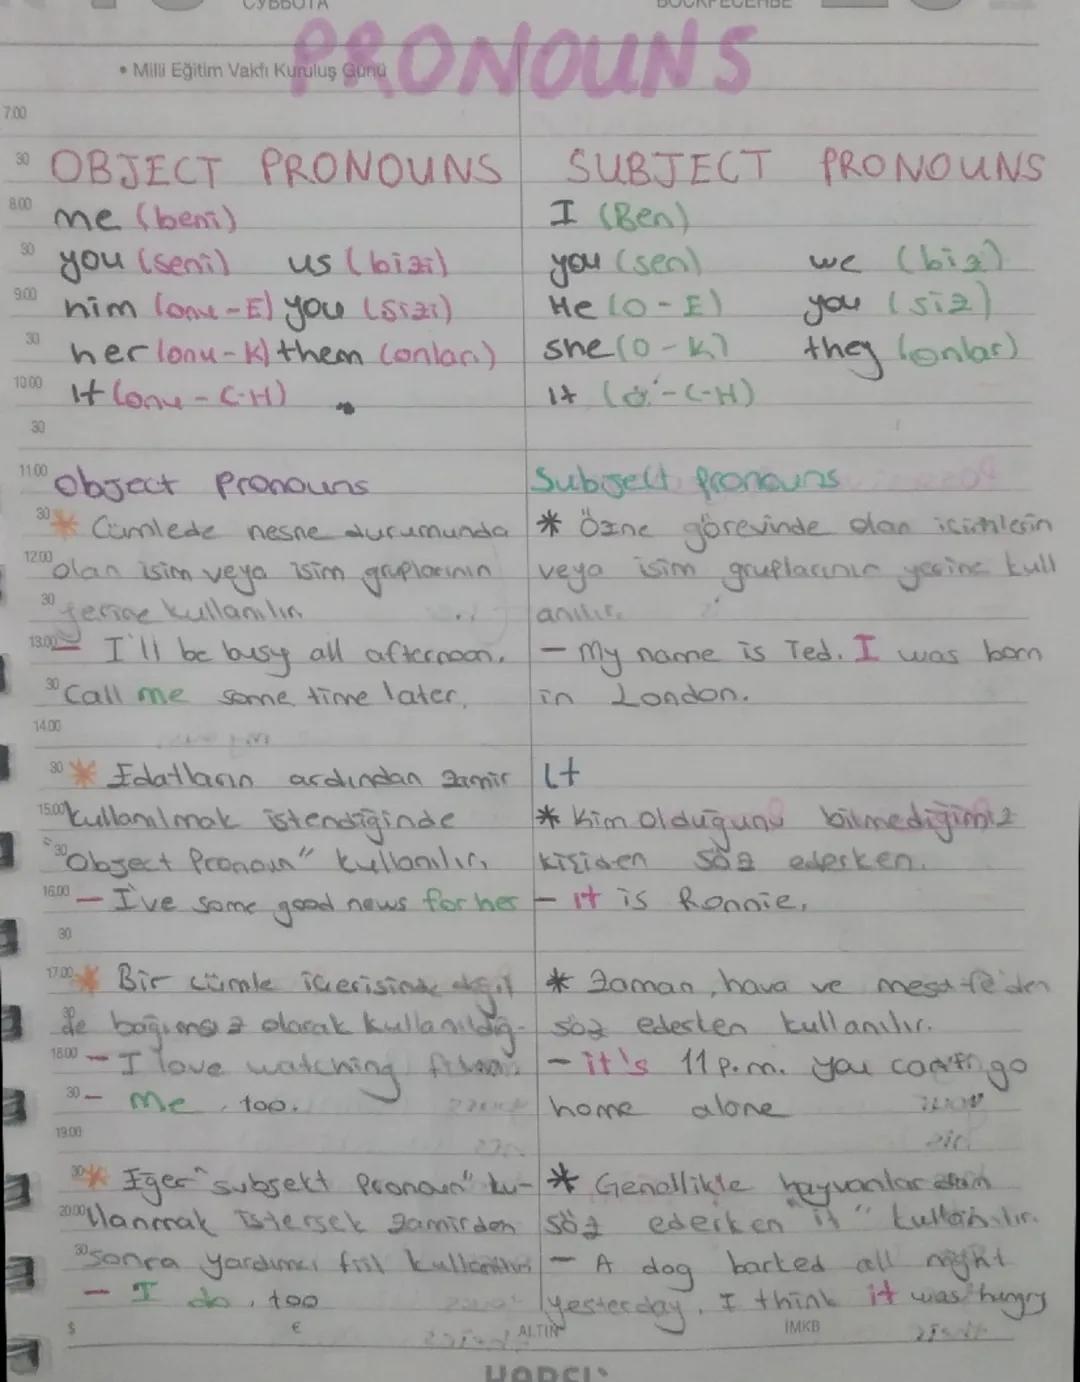 СУББОТА
PRONOUNS
• Milli Eğitim Vakfı Kuruluş Günü
7.00
30 OBJECT PRONOUNS
8.00 me (beni)
30 you (seni) us (bizi)
9.00 him (onu-E) you (sizi)
30 her (onu-K) them (onları)
10.00 It (onu-C-H)
30
SUBJECT PRONOUNS
I (Ben)
you (sen) we (biz)
He (O-E) you (siz)
she (O-K) they (onlar)
It (o-C-H)
11.00 Object Pronouns
30 * Cümlede nesne durumunda
12.00 olan isim veya isim gruplarının
30 yerine kullanılır.
13.00 - I'll be busy all afternoon.
30 Call me some time later.
14.00
30 * Edatların ardından zamir
15.00 kullanılmak istendiğinde
30 "Object Pronoun" kullanılır.
16.00 - I've some good news for her
30
17.00 * Bir cümle içerisinde değil
de bağımsız olarak kullanıldığ-
18.00 - I love watching
30 - Me, too.
19.00
30 * Eğer "subjekt pronoun" ku-
20.00 llanmak istersek zamirden
30 sonra yardımcı fiil kullanılır
- I do, too
Subject pronouns
* Özne görevinde olan isimlerin
veya isim gruplarının yerine kull
anılır.
- My name is Ted. I was born
in London.
It
* Kim olduğunu bilmediğimiz
kişiden söz ederken.
- it is Ronnie.
* Zaman, hava ve mesafe'den
söz ederken kullanılır.
- it's 11 p.m. you can't go
home alone
* Genellikle hayvanlardan
söz ederken "it" kullanılır.
- A dog barked all night
yesterday. I think it was hungry
$ € ALTIN İMKB